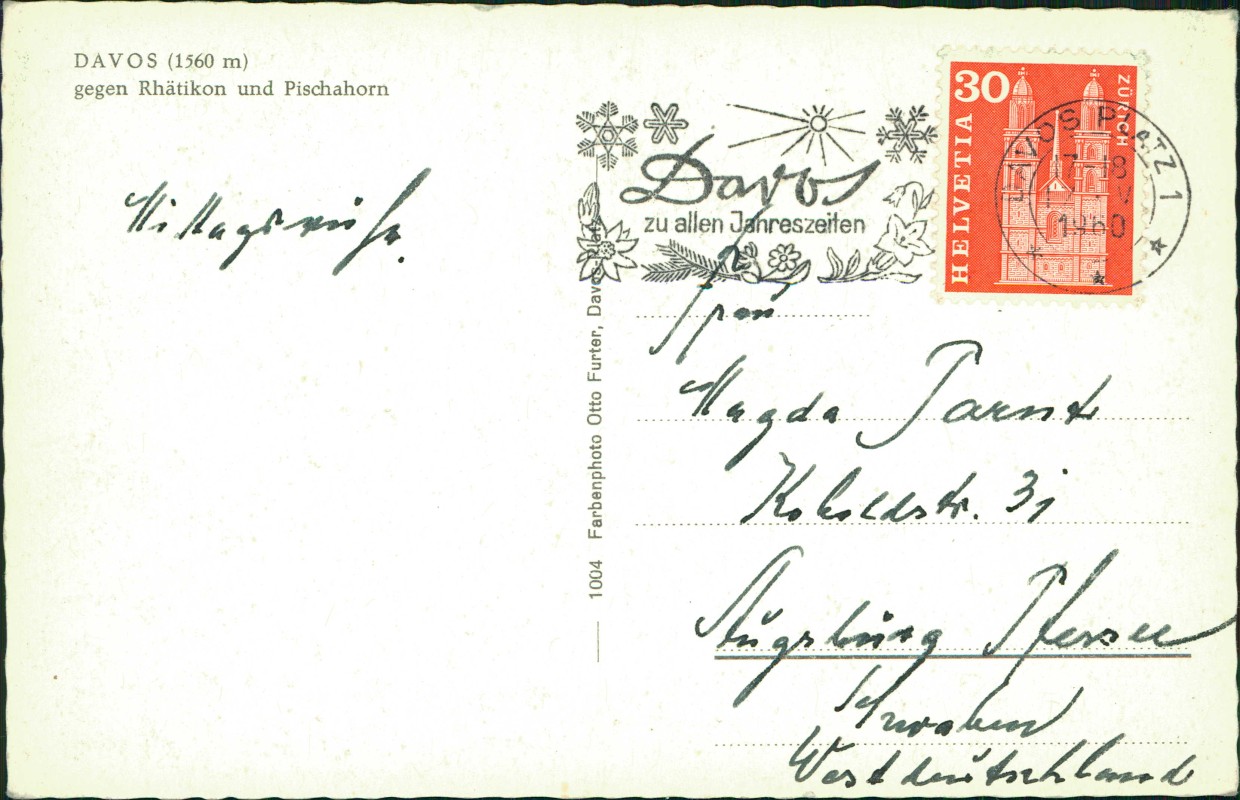 DAVOS (1560 m)
gegen Rhätikon und Pischahorn
Mittagsruhe.
1004 Farbenphoto Otto Furter, Davos-Platz
Davos
zu allen Jahreszeiten
HELVETIA
30
ZÜRICH
DAVOS PLATZ 1
17-18
1960
Frau
Magda
Augsburg Pfersee
Schwaben
Westdeutschland